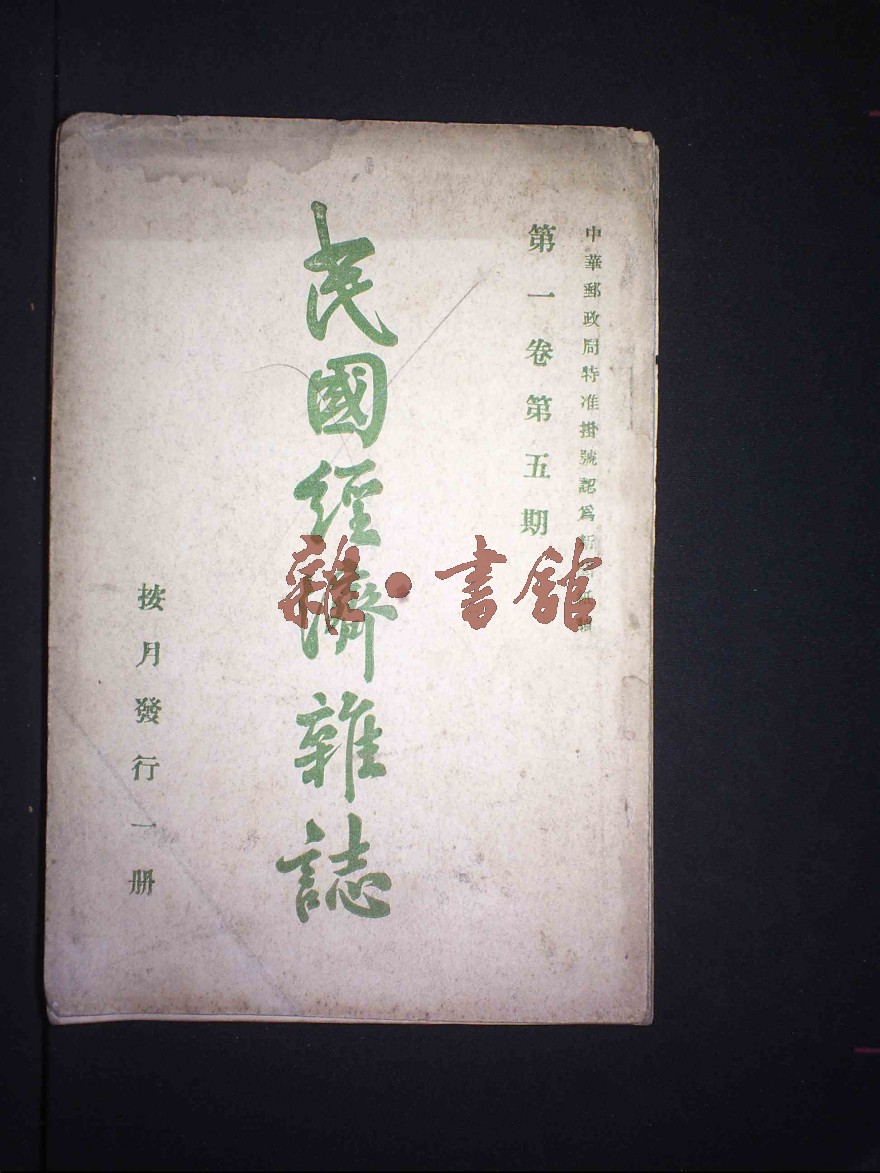 中華郵政局特准掛號認爲新聞紙類
第一卷第五期
民國經濟雜誌
按月發行一册
雜·書館